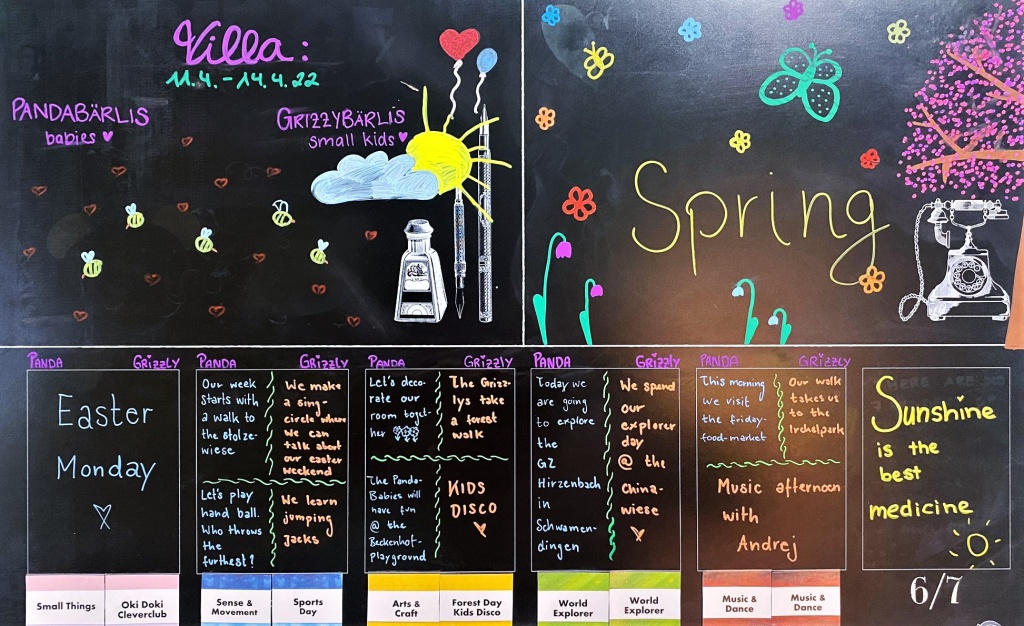 Villa:
11.4. - 14.4.22
PANDABÄRLIS
babies
GRIZZYBÄRLIS
small kids
Spring
PANDA GRIZZLY
Easter
Monday
Small Things
Oki Doki
Cleverclub
PANDA
Our week
starts with
a walk to
the stolze-
wiese
GRIZZLY
We make
a sing-
circle where
we can
talk about
our easter
weekend
Let's play
hand ball.
Who throws
the
furthest?
We learn
jumping
Jacks
Sense &
Movement
Sports
Day
PANDA
Let's deco-
rate our
room toget-
her
GRIZZLY
The Grizz-
lys take
a forest
walk
The Panda-
Babies will
have fun
@ the
Beckenhof-
playground
KIDS
DISCO
Arts &
Craft
Forest Day
Kids Disco
PANDA
Today we
are going
to explore
the
GZ
Hirzenbach
in
Schwamen-
dingen
GRIZZLY
We spend
our
explorer
day
@ the
China-
wiese
World
Explorer
World
Explorer
PANDA
This morning
we visit
the friday-
food-market
GRIZZLY
Our walk
takes us
to the
Irchelpark
Music afternoon
with
Andrej
Music &
Dance
Music &
Dance
Sunshine
is the
best
medicine
6/7